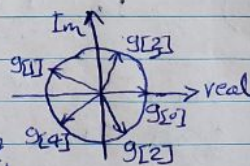 Im
g[3]
g[1]
real
g[0]
g[4]
g[2]